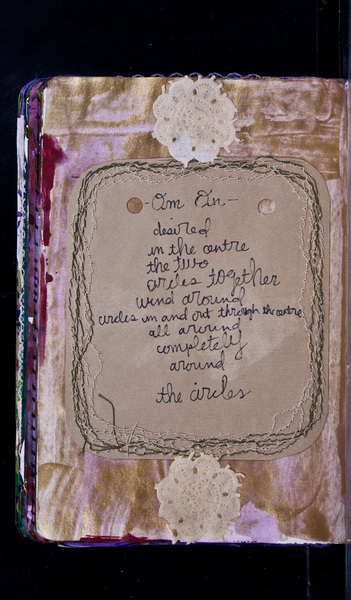 -Om On-
desired
in the centre
the two
circles together
wind around
circles in and out through the centre
all around
completely
around
the circles